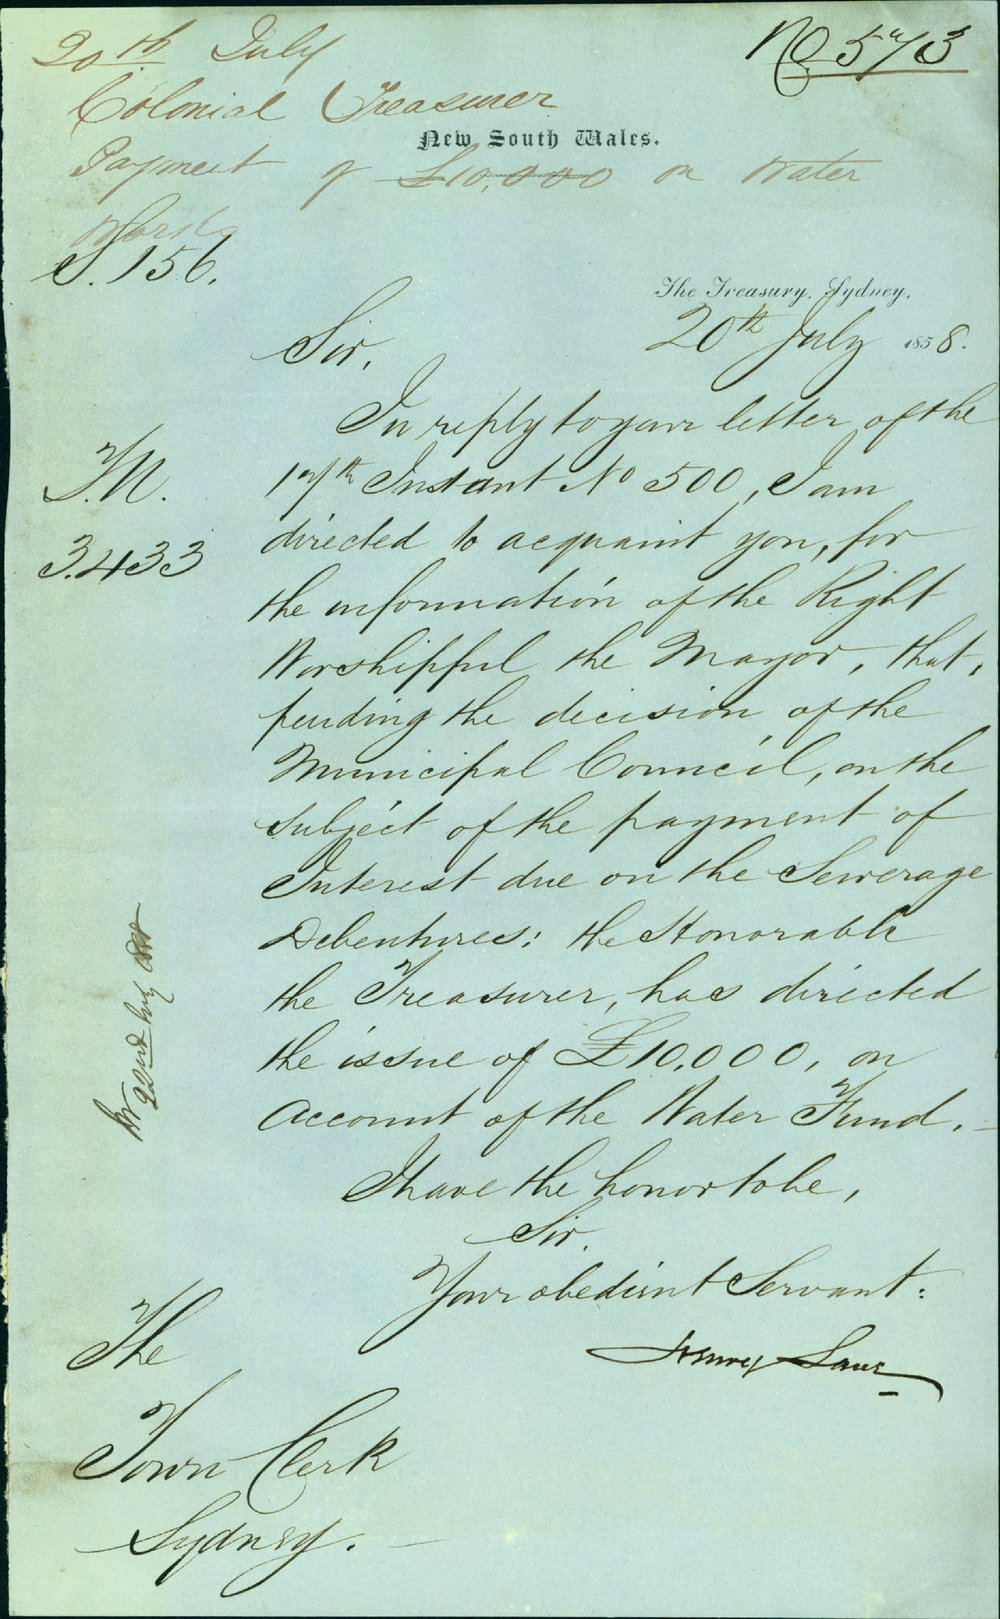 20th July
No 573
Colonial Treasurer
New South Wales.
Payment of £10,000 on Water
Works
S. 156.
The Treasury, Sydney,
20th July 1858.
Sir,
In reply to your letter of the
17th Instant No 500, I am
T.N.
directed to acquaint you, for
3.433
the information of the Right
Worshipful the Mayor, that,
pending the decision of the
Municipal Council, on the
subject of the payment of
Interest due on the Sewerage
Debentures: the Honorable
the Treasurer, has directed
the issue of £10.000, on
Account of the Water Fund.
22nd July
I have the honor to be,
Sir,
Your obedient Servant:
Henry Lane
The
Town Clerk
Sydney.